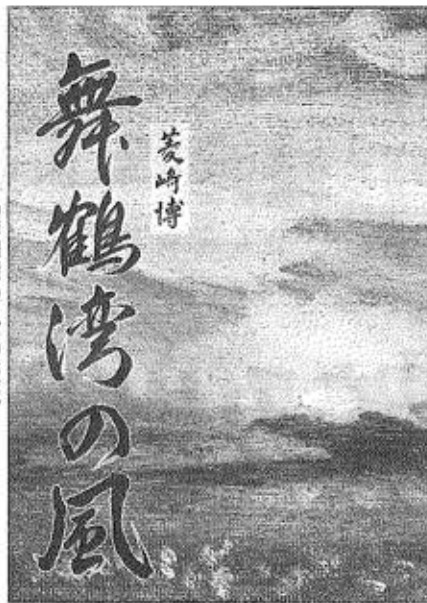 舞鶴湾の風
菱崎博